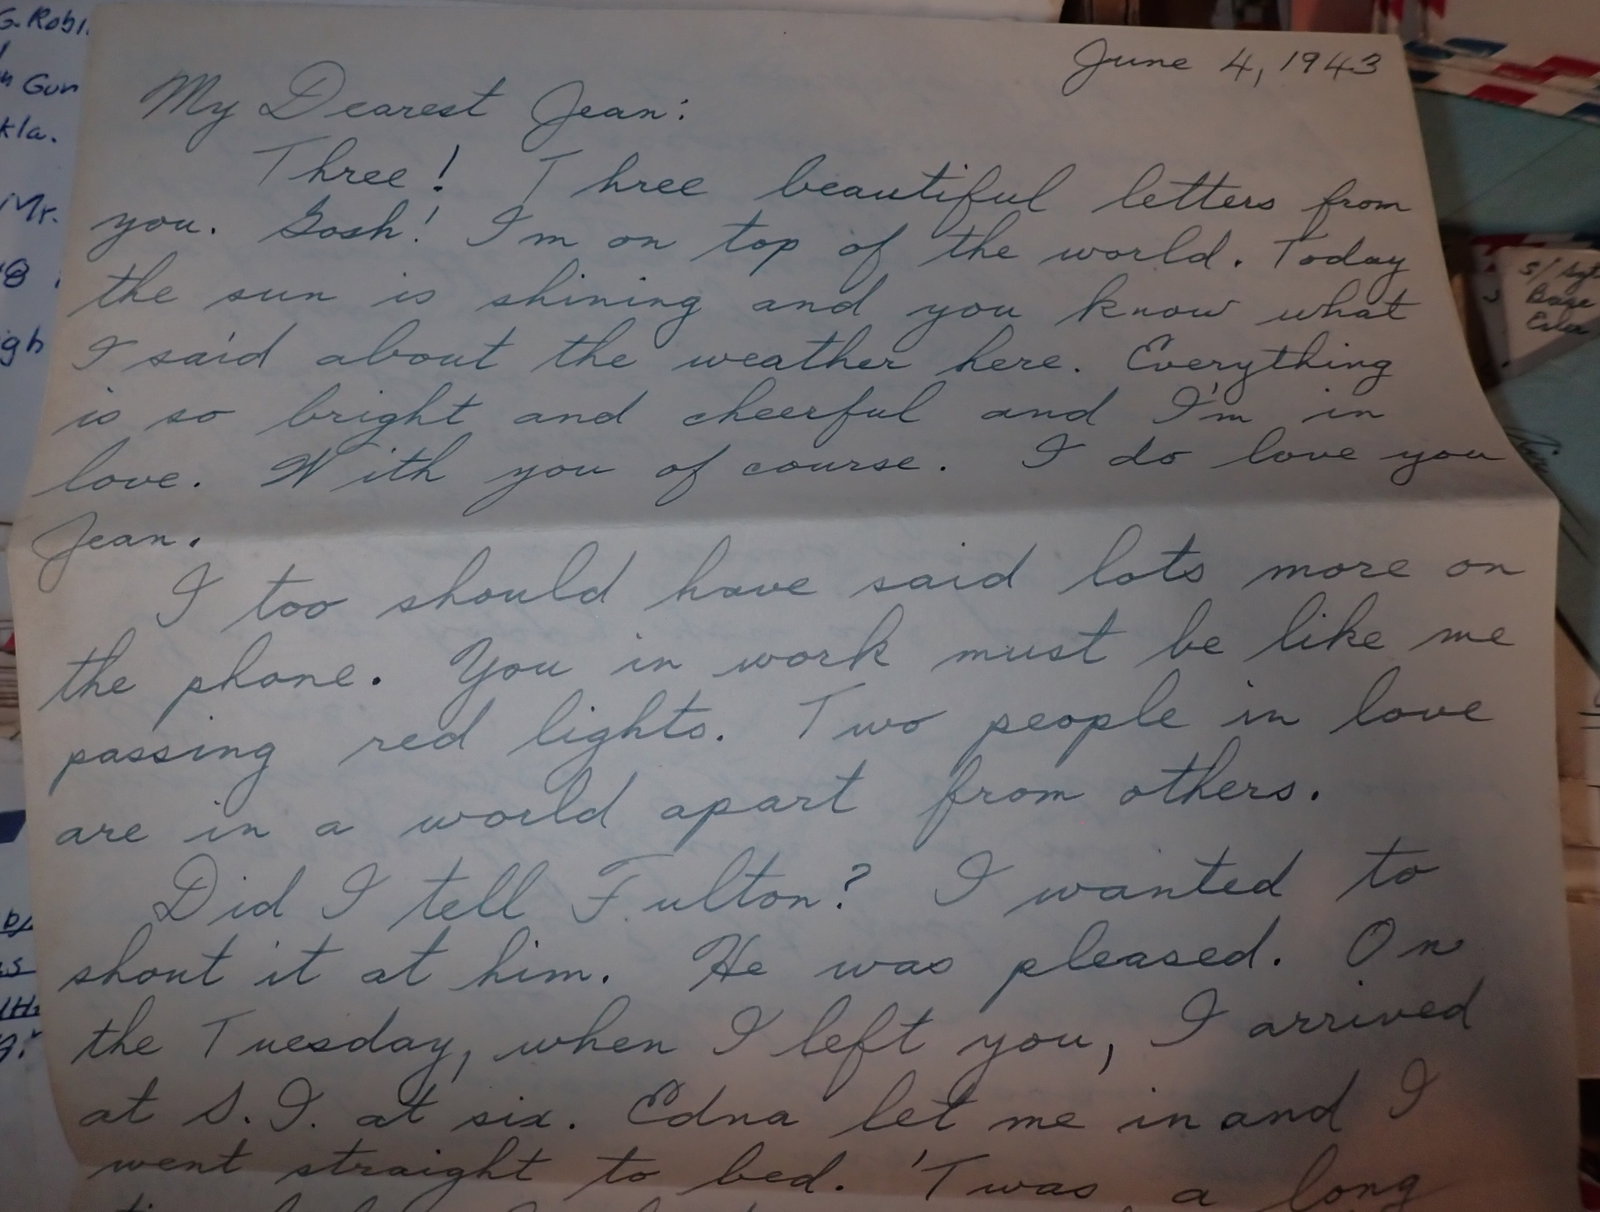 June 4, 1943
My Dearest Jean:
Three! Three beautiful letters from
you. Gosh! I'm on top of the world. Today
the sun is shining and you know what
I said about the weather here. Everything
is so bright and cheerful and I'm in
love. With you of course. I do love you
Jean.
I too should have said lots more on
the phone. You in work must be like me
passing red lights. Two people in love
are in a world apart from others.
Did I tell Fulton? I wanted to
shout it at him. He was pleased. On
the Tuesday, when I left you, I arrived
at S.I. at six. Edna let me in and I
went straight to bed. 'Twas a long
G. Robi
Gun
kla.
Mr.